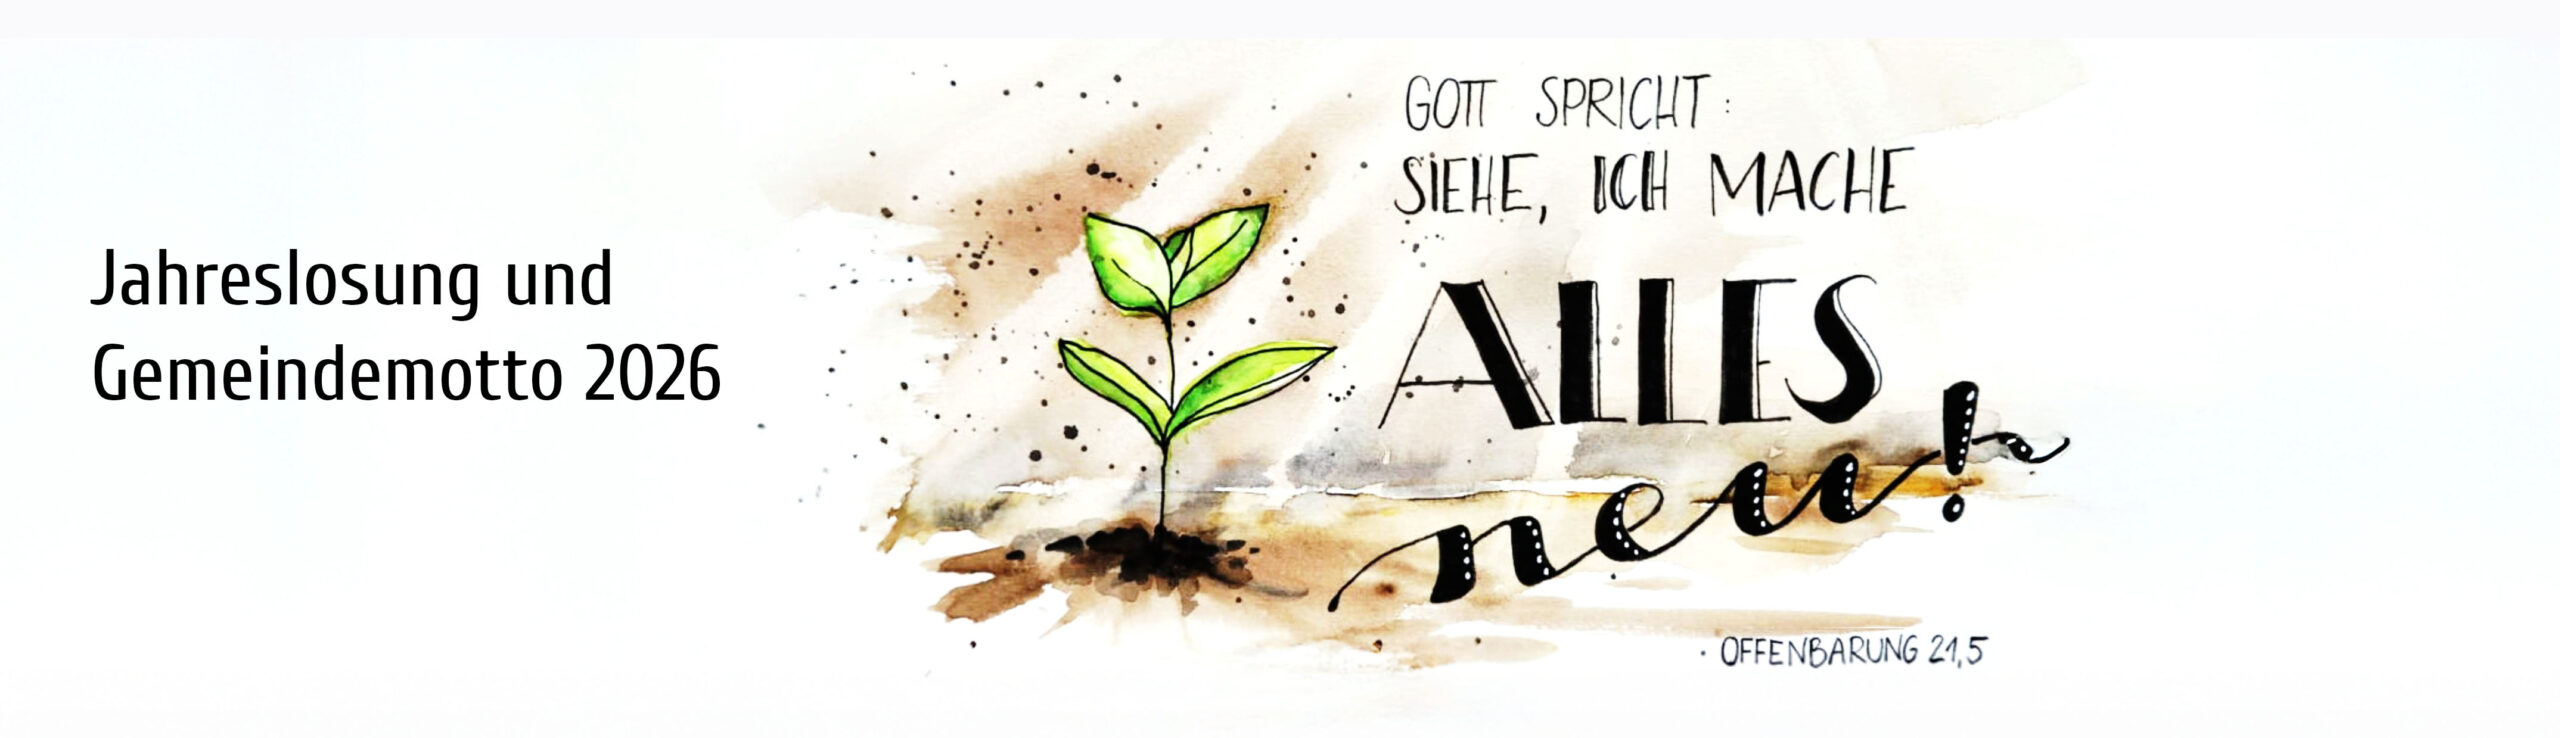 Jahreslosung und
Gemeindemotto 2026
GOTT SPRICHT:
SIEHE, ICH MACHE
ALLES
neu!
· OFFENBARUNG 21,5